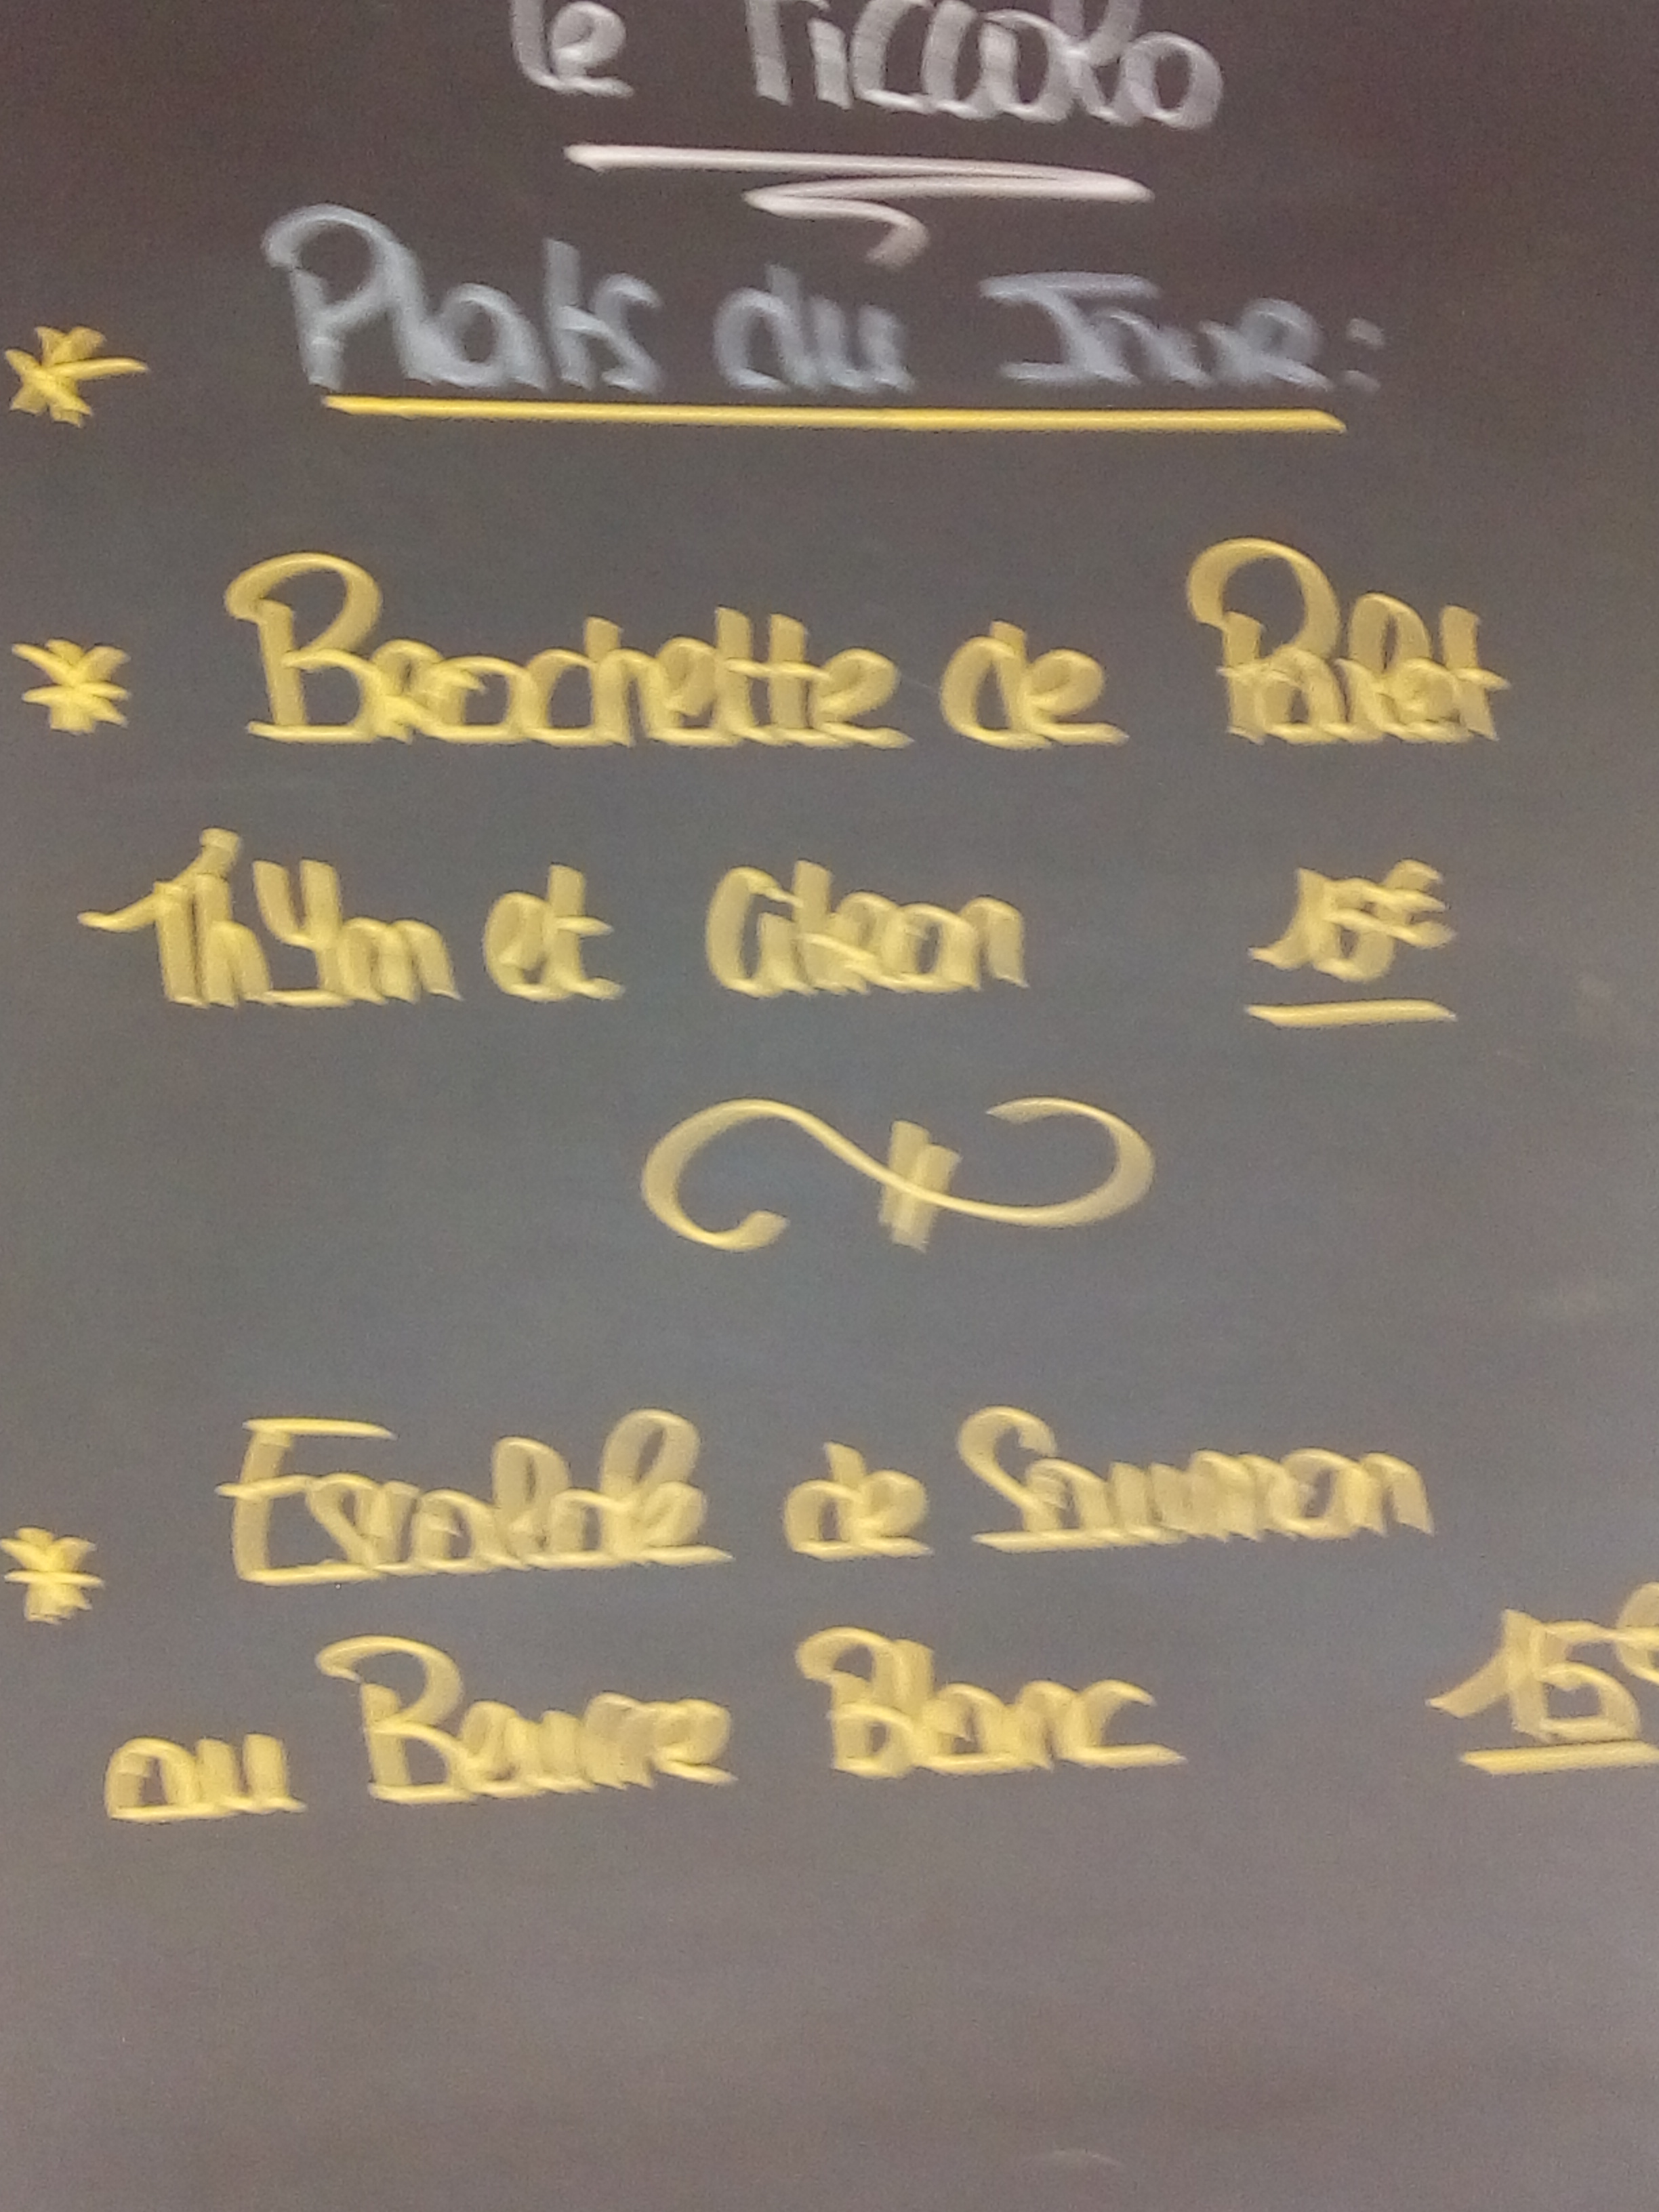 le Piccolo
Plats du Jour:
* Brochette de Poulet
Thym et Citron 15€
* Escalope de Saumon
au Beurre Blanc 15€